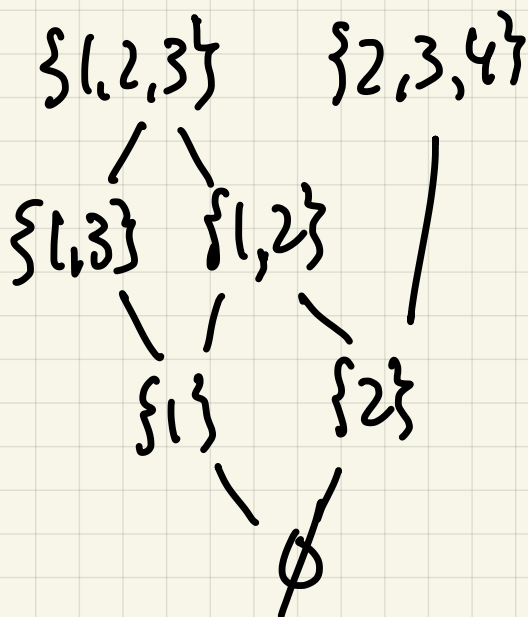 {1,2,3} {2,3,4}
{1,3} {1,2}
{1} {2}
∅